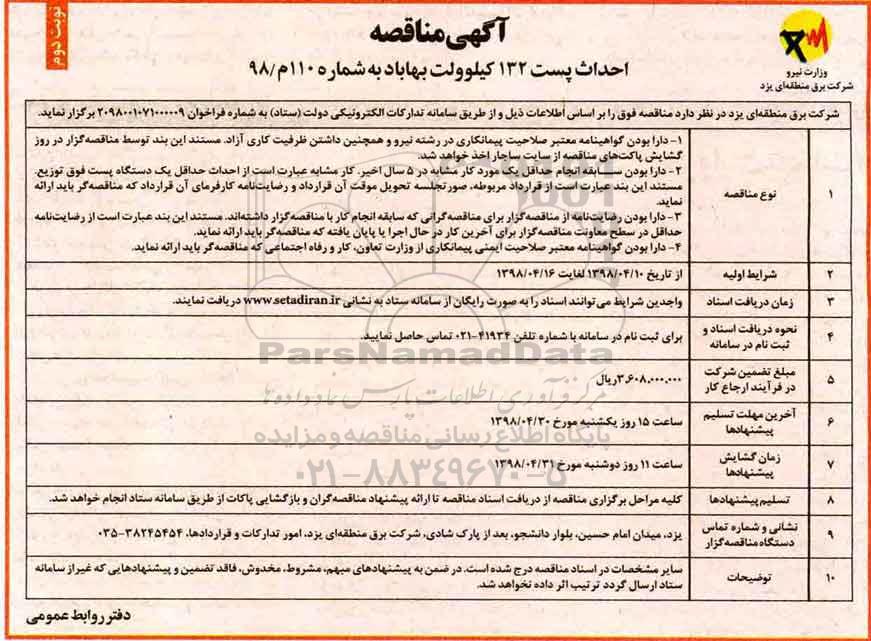 نوبت دوم
آگهی مناقصه
احداث پست ۱۳۲ کیلوولت بهاباد به شماره ۱۱۰م/۹۸
وزارت نیرو
شرکت برق منطقه‌ای یزد
شرکت برق منطقه‌ای یزد در نظر دارد مناقصه فوق را بر اساس اطلاعات ذیل و از طریق سامانه تدارکات الکترونیکی دولت (ستاد) به شماره فراخوان ۲۰۹۸۰۰۱۰۷۱۰۰۰۰۰۹ برگزار نماید.
۱
نوع مناقصه
۱- دارا بودن گواهینامه معتبر صلاحیت پیمانکاری در رشته نیرو و همچنین داشتن ظرفیت کاری آزاد. مستند این بند توسط مناقصه‌گزار در روز
گشایش پاکت‌های مناقصه از سایت ساجار اخذ خواهد شد.
۲- دارا بودن سابقه انجام حداقل یک مورد کار مشابه در ۵ سال اخیر. کار مشابه عبارت است از احداث حداقل یک دستگاه پست فوق توزیع.
مستند این بند عبارت است از قرارداد مربوطه، صورتجلسه تحویل موقت آن قرارداد و رضایت‌نامه کارفرمای آن قرارداد که مناقصه‌گر باید ارائه
نماید.
۳- دارا بودن رضایت‌نامه از مناقصه‌گزار برای مناقصه‌گرانی که سابقه انجام کار با مناقصه‌گزار داشته‌اند. مستند این بند عبارت است از رضایت‌نامه
حداقل در سطح معاونت مناقصه‌گزار برای آخرین کار در حال اجرا یا پایان یافته که مناقصه‌گر باید ارائه نماید.
۴- دارا بودن گواهینامه معتبر صلاحیت ایمنی پیمانکاری از وزارت تعاون، کار و رفاه اجتماعی که مناقصه‌گر باید ارائه نماید.
۲
شرایط اولیه
از تاریخ ۱۳۹۸/۰۴/۱۰ لغایت ۱۳۹۸/۰۴/۱۶
۳
زمان دریافت اسناد
واجدین شرایط می‌توانند اسناد را به صورت رایگان از سامانه ستاد به نشانی www.setadiran.ir دریافت نمایند.
۴
نحوه دریافت اسناد و
ثبت نام در سامانه
برای ثبت نام در سامانه با شماره تلفن ۴۱۹۳۴-۰۲۱ تماس حاصل نمایید.
ParsNamadData
۵
مبلغ تضمین شرکت
در فرآیند ارجاع کار
۳،۶۰۸،۰۰۰،۰۰۰ ریال
مرکز فرآوری اطلاعات پارس نماد داده‌ها
۶
آخرین مهلت تسلیم
پیشنهادها
ساعت ۱۵ روز یکشنبه مورخ ۱۳۹۸/۰۴/۳۰
پایگاه اطلاع رسانی مناقصه و مزایده
۷
زمان گشایش
پیشنهادها
ساعت ۱۱ روز دوشنبه مورخ ۱۳۹۸/۰۴/۳۱
۰۲۱-۸۸۳۴۹۶۷۰-۵
۸
تسلیم پیشنهادها
کلیه مراحل برگزاری مناقصه از دریافت اسناد مناقصه تا ارائه پیشنهاد مناقصه‌گران و بازگشایی پاکات از طریق سامانه ستاد انجام خواهد شد.
۹
نشانی و شماره تماس
دستگاه مناقصه‌گزار
یزد، میدان امام حسین، بلوار دانشجو، بعد از پارک شادی، شرکت برق منطقه‌ای یزد، امور تدارکات و قراردادها، ۳۸۲۴۵۴۵۴-۰۳۵
۱۰
توضیحات
سایر مشخصات در اسناد مناقصه درج شده است. در ضمن به پیشنهادهای مبهم، مشروط، مخدوش، فاقد تضمین و پیشنهادهایی که غیر از سامانه
ستاد ارسال گردد ترتیب اثر داده نخواهد شد.
دفتر روابط عمومی